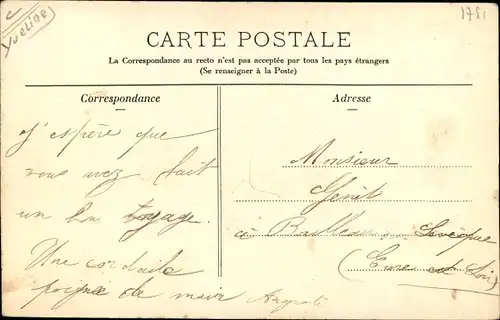 Yvelines
1781
CARTE POSTALE
La Correspondance au recto n'est pas acceptée par tous les pays étrangers
(Se renseigner à la Poste)
Correspondance
Adresse
J'espère que
vous avez fait
un bon voyage.
Une cordiale
poignée de main
Monsieur
Génit
à Bailleau Levêque
(Eure et Loir)